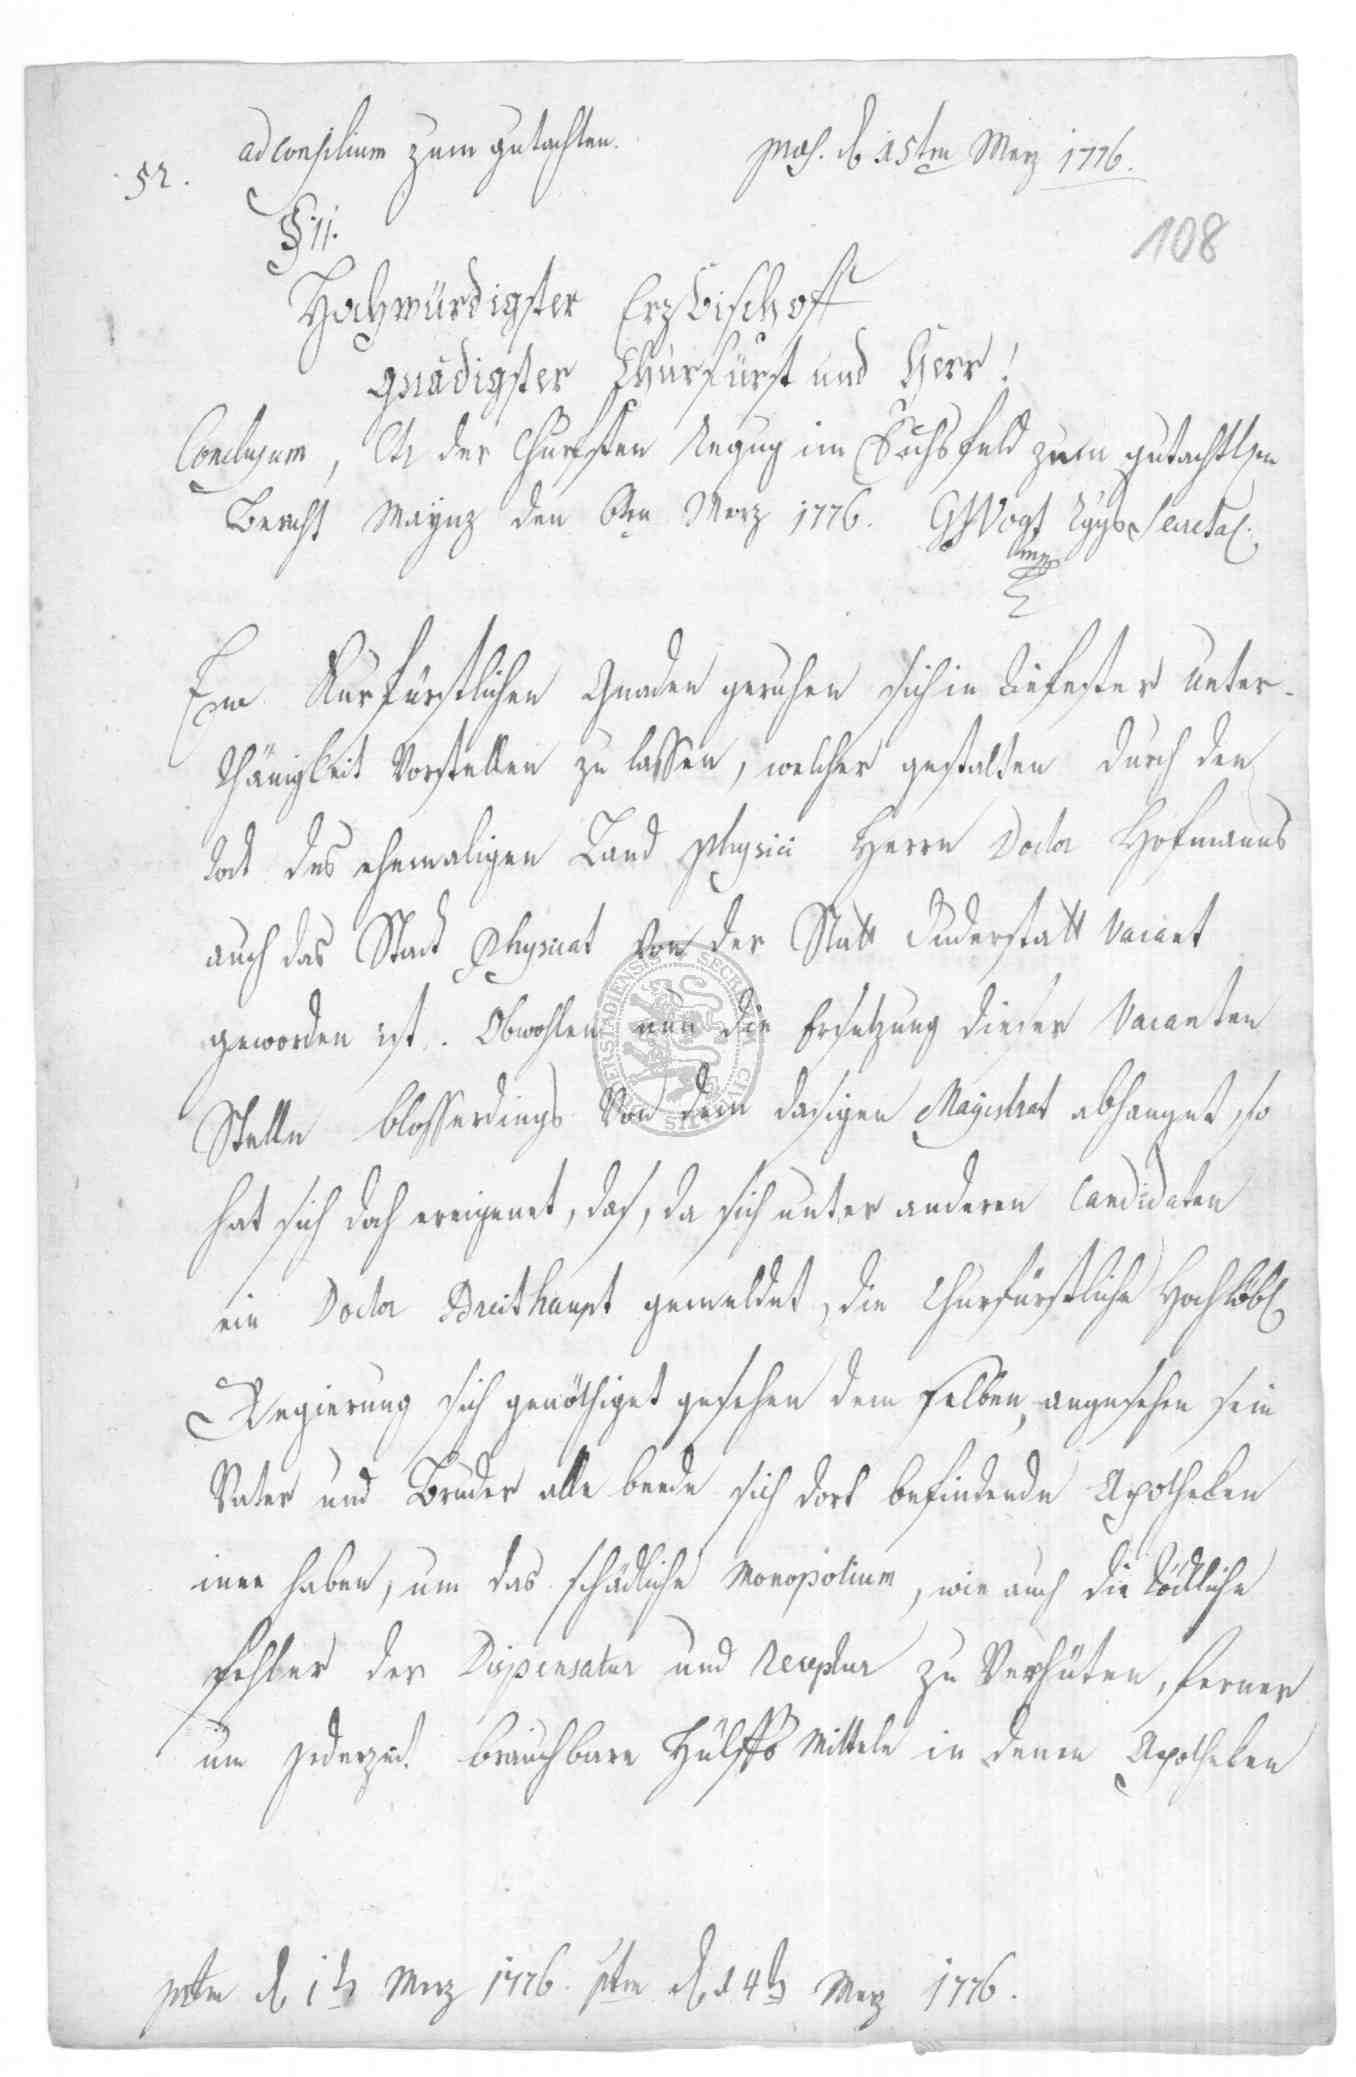 ad Consilium zum gutachten. præs. d 15ten Merz 1776.
52.
§ 11.
108
Hochwürdigster Erzbischoff
gnädigster Churfürst und Herr!
Conclusum, der Churfsten im Eichsfeld zum gutachtlen
Bericht Maynz den 6ten Merz 1776. GVogt Secretar.
Ew Kurfürstlichen Gnaden geruhen sich in tiefester Unter-
thänigkeit Vorstellen zu lassen, welcher gestalten durch den
tod des ehemaligen Land Physici Herrn Doctor Hofmanns
auch das Stadt Physicat von der Statt Duderstatt Vacant
geworden ist. Obwohlen nun die Ersetzung dieser Vacanten
Stelle blosserdings Von dem dasigen Magistrat abhanget, so
hat sich doch ereignet, das, da sich unter anderen Candidaten
ein Doctor Breithaupt gemeldet, die Churfürstliche Hochlöbl
Regierung sich genöthiget gesehen dem selben, angesehen sein
Vater und Bruder alle beede sich dort befindende Apotheken
inne haben, um das schädliche Monopolium, wie auch die tödtliche
fehler der Dispensatur und Receptur zu Verhüten, ferner
um jederzeit brauchbare Hülffs Mittele in denen Apotheken
d 1 Merz 1776. d 4 Merz 1776.
SECRETUM CIVI